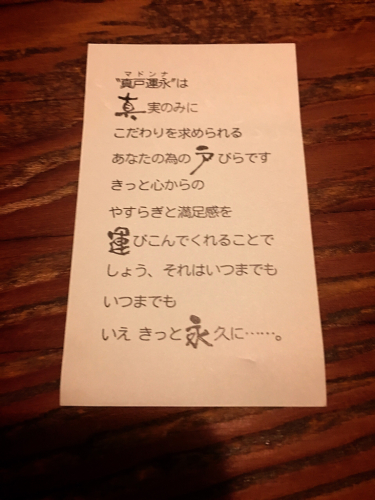 マドンナ
"真戸運永"は
真実のみに
こだわりを求められる
あなたの為の戸びらです
きっと心からの
やすらぎと満足感を
運びこんでくれることで
しょう、それはいつまでも
いつまでも
いえ きっと永久に……。